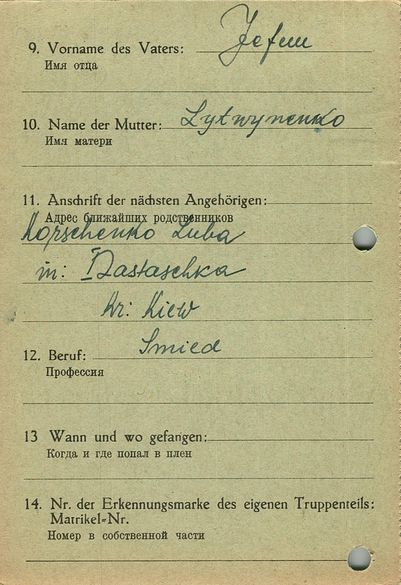 9. Vorname des Vaters: Jefim
Имя отца
10. Name der Mutter: Lytwynenko
Имя матери
11. Anschrift der nächsten Angehörigen:
Адрес ближайших родственников
Korschenko Luba
in: Nastaschka
Kr: Kiew
12. Beruf: Smied
Профессия
13 Wann und wo gefangen:
Когда и где попал в плен
14. Nr. der Erkennungsmarke des eigenen Truppenteils:
Matrikel-Nr.
Номер в собственной части